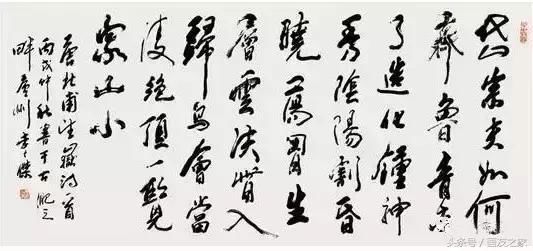 岱宗夫如何
齊魯青未
了造化鍾神
秀陰陽割昏
曉蕩胸生
層雲決眥入
歸鳥會當
凌絕頂一覽
衆山小
杜甫望嶽詩一首
丙戌仲秋書于古肥之
畔廬州李傑
头条号/画友之家